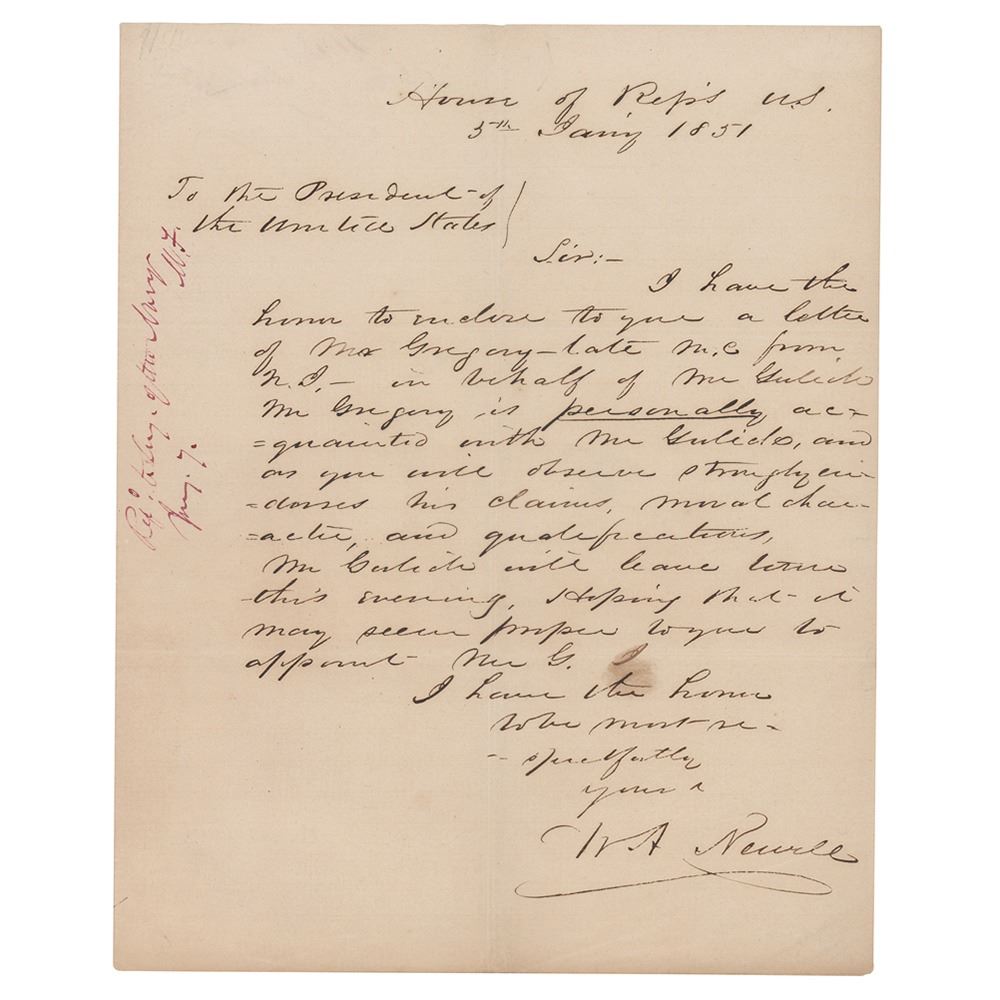 House of Rep's U.S.
5th Jany 1851
To the President of
the United States
Sir:-
I have the
honor to enclose to you a letter
of Mr Gregory - late M.C from
N.J. - in behalf of Mr Gulick
Mr Gregory is personally ac-
=quainted with Mr Gulick, and
as you will observe strongly en-
-dorses his claims, moral char-
=acter, and qualifications,
Mr Gulick will leave here
this evening. Hoping that it
may seem proper to you to
appoint Mr G. I
I have the honor
to be most re-
- spectfully
yours
W A Newell
Refd to Secy. of the Navy
M.F.
Jany. 7.